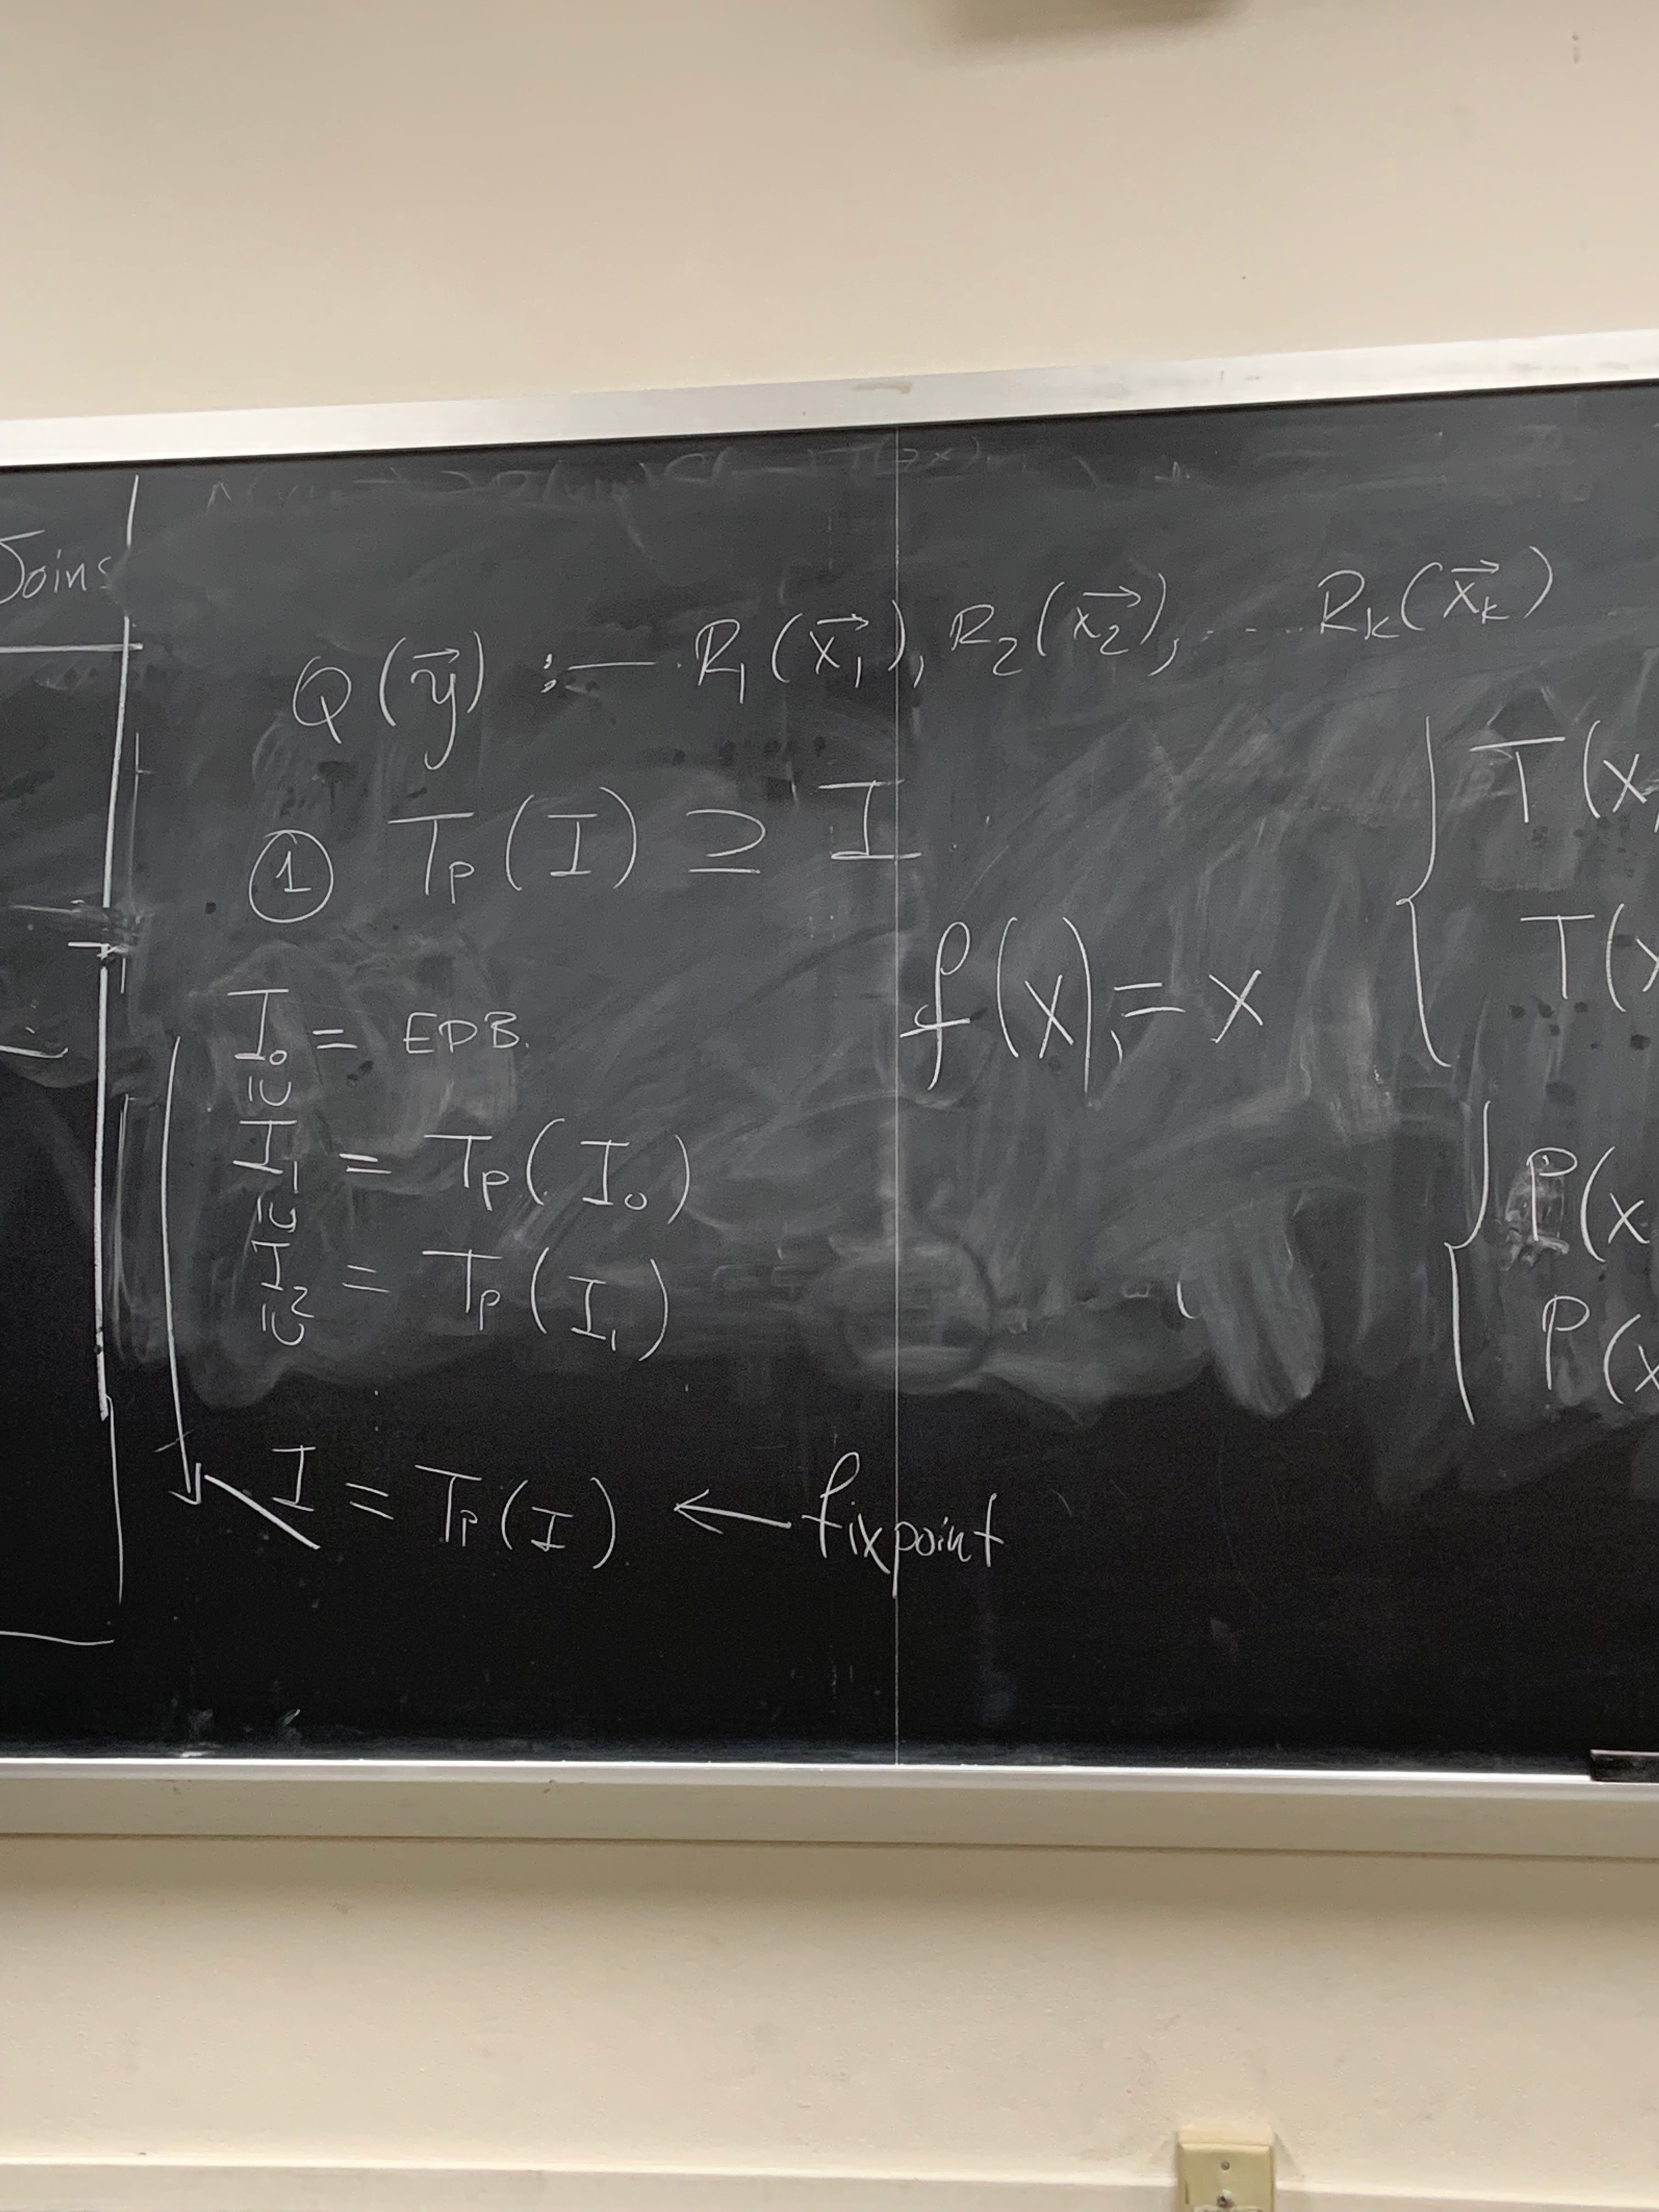 Joins
Q(y⃗) :— R₁(x⃗₁), R₂(x⃗₂), .... Rₖ(x⃗ₖ)
① Tₚ(I) ⊇ I
I₀ = EDB.
⊆
I₁ = Tₚ(I₀)
⊆
I₂ = Tₚ(I₁)
⊆
I = Tₚ(I) ← fixpoint
f(x) = x
T(x,
T(x
P(x
P(x